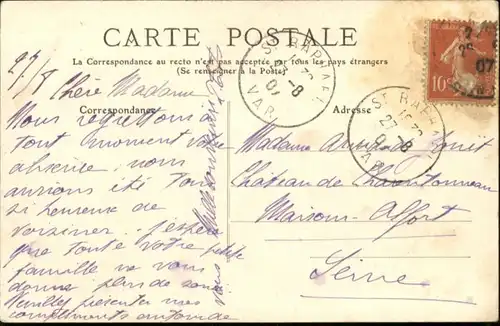 CARTE POSTALE
La Correspondance au recto n'est pas acceptée par tous les pays étrangers
(Se renseigner à la Poste)
Correspondance
Adresse
27/8
Chère Madame
Nous regrettons à
tout moment votre
absence, nous
aurions été tous
si heureux de
voisiner. J'espère
que toute votre petite
famille va vous
donne plus de
Veuillez présenter nos
compliments
Madame
Château de Charentonneau
Maisons-Alfort
Seine
ST RAPHAEL
27-8
07
VAR
ST RAPHAEL
27-8
07
VAR
10
07